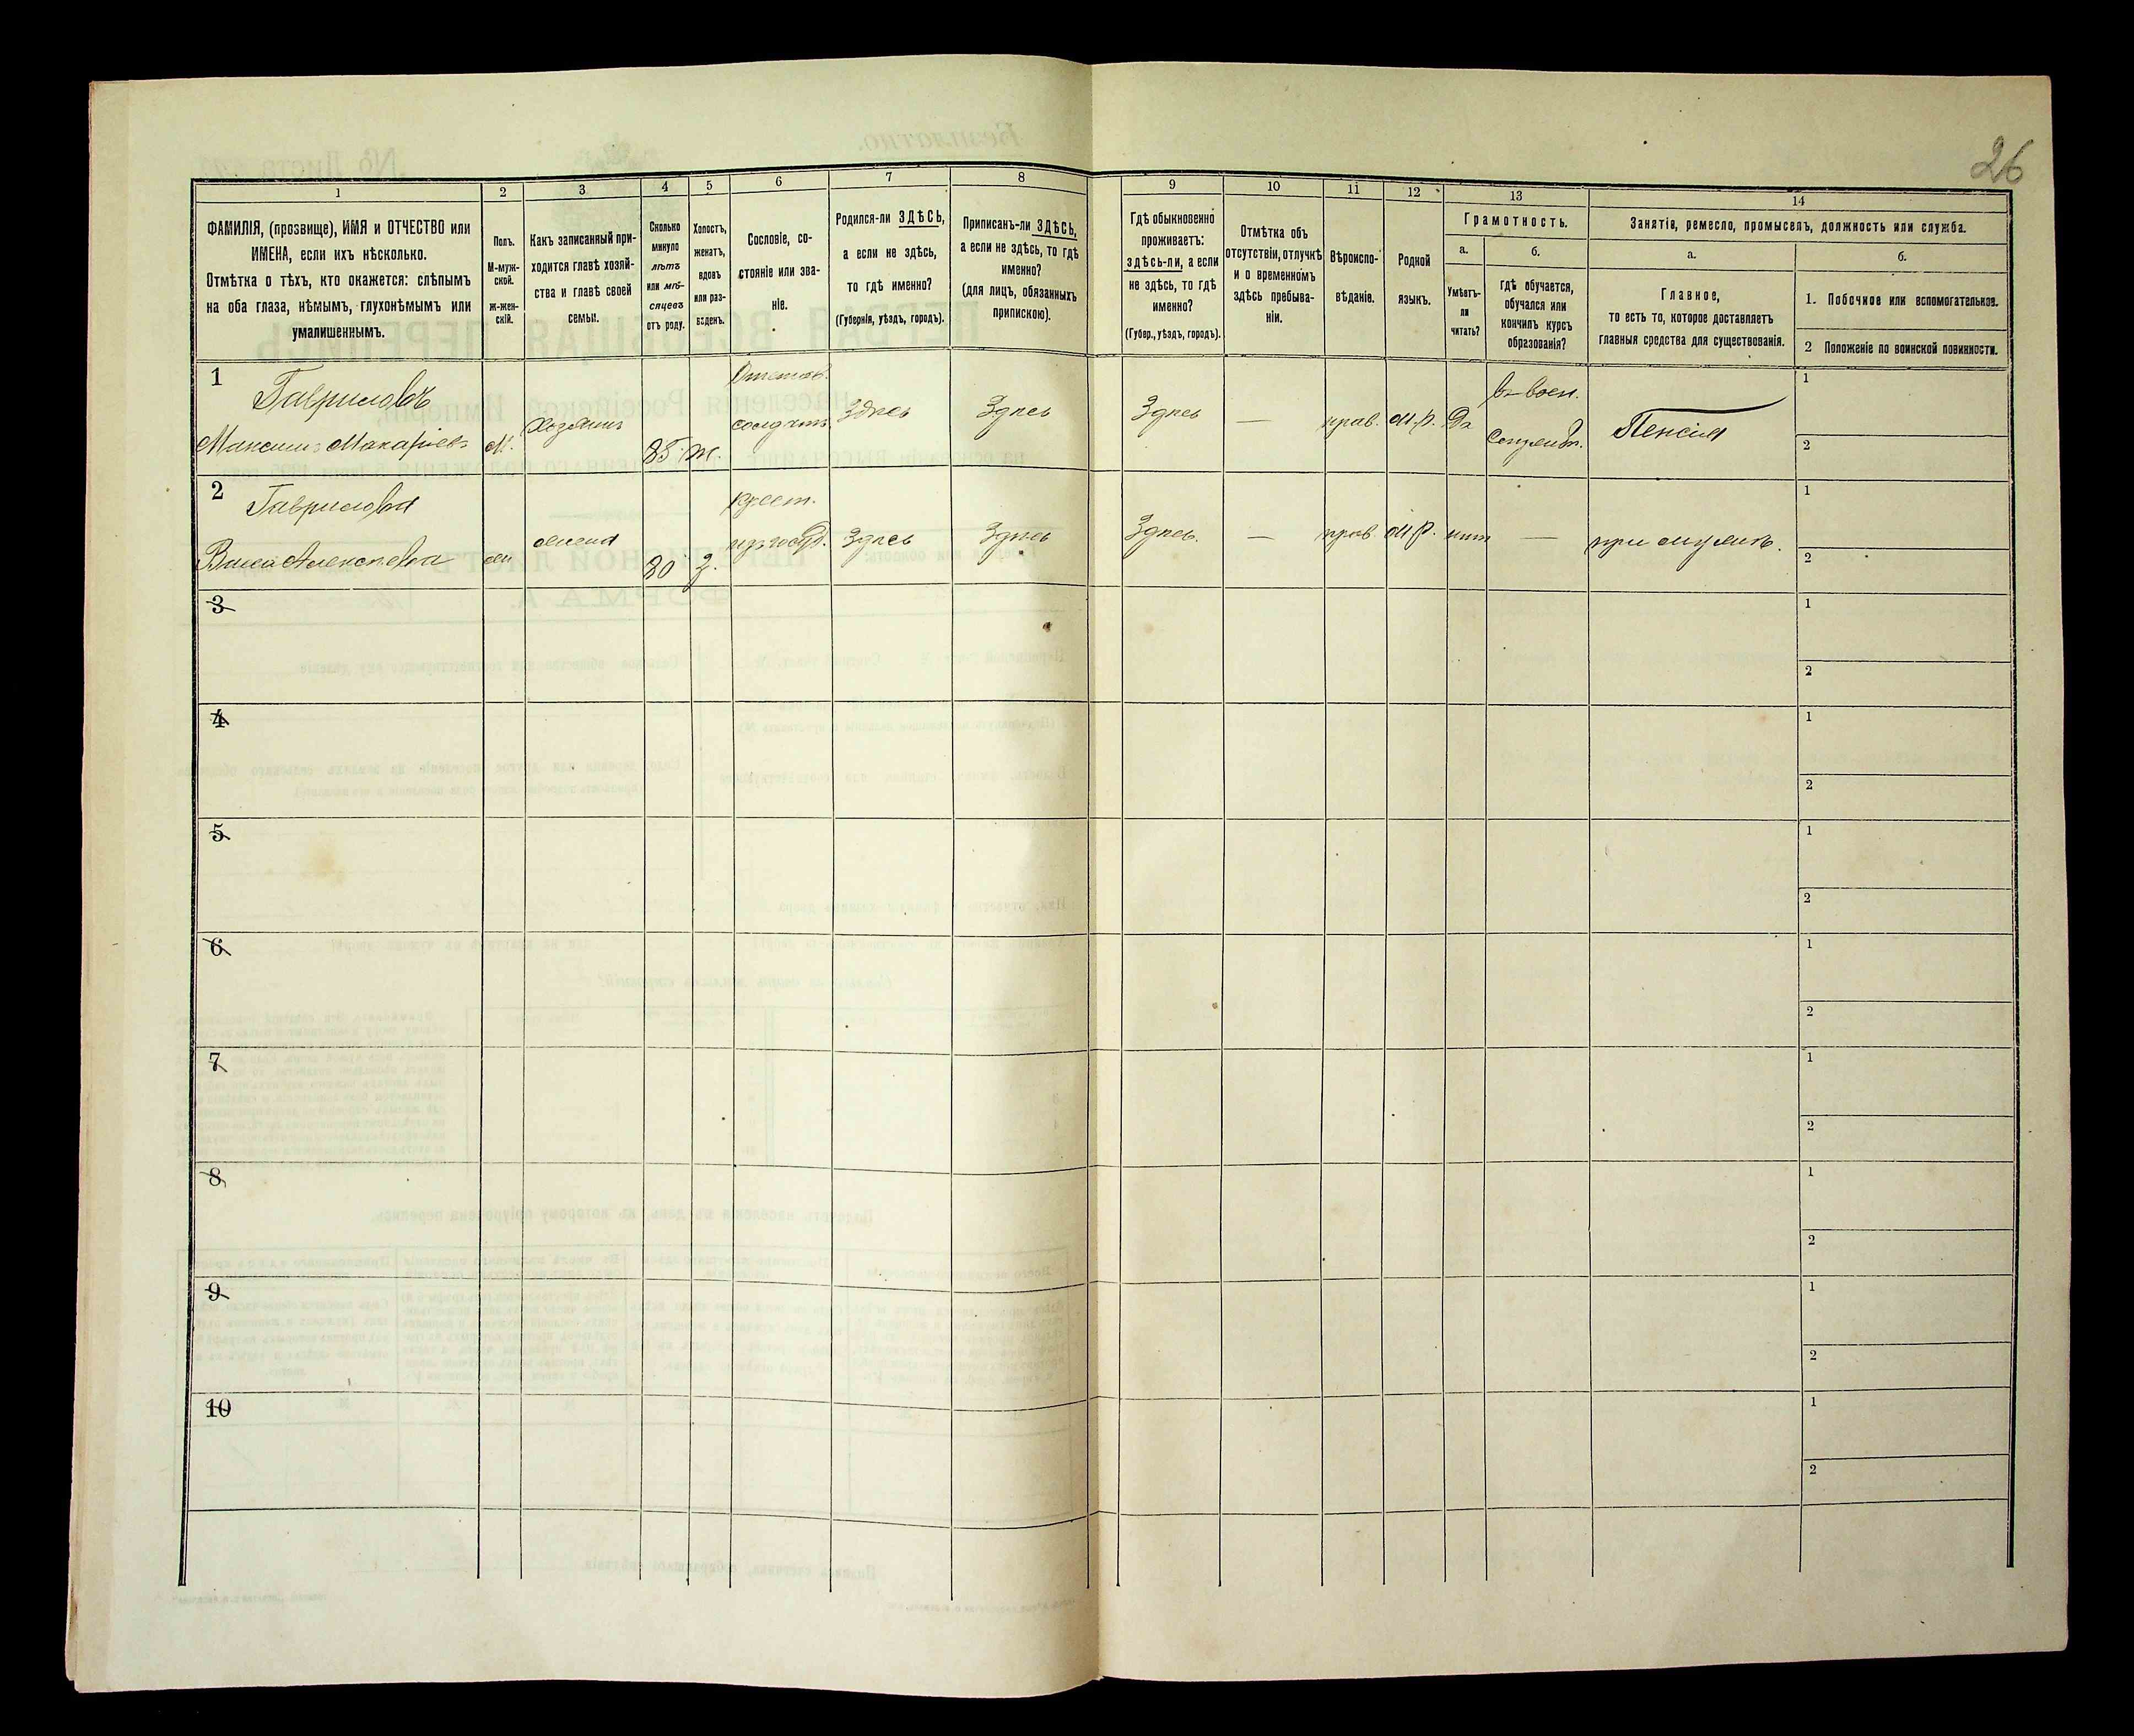 26
1
2
3
4
5
6
7
8
9
10
11
12
13
14
ФАМИЛІЯ, (прозвище), ИМЯ и ОТЧЕСТВО или
ИМЕНА, если ихъ нѣсколько.
Отмѣтка о тѣхъ, кто окажется: слѣпымъ
на оба глаза, нѣмымъ, глухонѣмымъ или
умалишеннымъ.
Полъ.
М-муж-
ской.
ж-жен-
скій.
Какъ записанный при-
ходится главѣ хозяй-
ства и главѣ своей
семьи.
Сколько
минуло
лѣтъ
или мѣ-
сяцевъ
отъ роду.
Холостъ,
женатъ,
вдовъ
или раз-
веденъ.
Сословіе, со-
стояніе или зва-
ніе.
Родился-ли ЗДѢСЬ,
а если не здѣсь,
то гдѣ именно?
(Губернія, уѣздъ, городъ).
Приписанъ-ли ЗДѢСЬ,
а если не здѣсь, то гдѣ
именно?
(для лицъ, обязанныхъ
припискою).
Гдѣ обыкновенно
проживаетъ:
здѣсь-ли, а если
не здѣсь, то гдѣ
именно?
(Губер., уѣздъ, городъ).
Отмѣтка объ
отсутствіи, отлучкѣ
и о временномъ
здѣсь пребыва-
ніи.
Вѣроиспо-
вѣданіе.
Родной
языкъ.
Грамотность.
а.
Умѣетъ-
ли
читать?
б.
гдѣ обучается,
обучался или
кончилъ курсъ
образованія?
Занятіе, ремесло, промыселъ, должность или служба.
а.
Главное,
то есть то, которое доставляетъ
главныя средства для существованія.
б.
1. Побочное или вспомогательное.
2 Положеніе по воинской повинности.
1
Гавриловъ
Максимъ Макаріевъ
М.
Хозяинъ
85
ж.
Отстав.
солдатъ
Здѣсь
Здѣсь
Здѣсь
—
прав.
М.р.
Да
въ воен.
Пенсія
1
2
2
Гаврилова
Алексѣевна
жена
80
З.
крест.
Здѣсь
Здѣсь
Здѣсь.
—
прав.
М.р.
нѣтъ
—
при мужѣ.
1
2
3
1
2
4
1
2
5
1
2
6
1
2
7
1
2
8
1
2
9
1
2
10
1
2